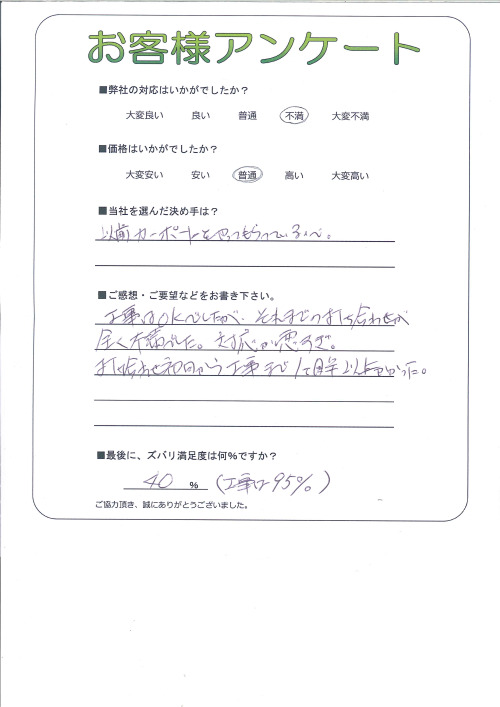 お客様アンケート
■弊社の対応はいかがでしたか？
大変良い 良い 普通 不満 大変不満
■価格はいかがでしたか？
大変安い 安い 普通 高い 大変高い
■当社を選んだ決め手は？
以前カーポートをやってもらっているので。
■ご感想・ご要望などをお書き下さい。
工事はOKでしたが、それまでの打ち合わせが
全く不満でした。対応が悪すぎ。
打ち合わせ初回から工事まで1年以上かかった。
■最後に、ズバリ満足度は何％ですか？
40 % (工事は95%)
ご協力頂き、誠にありがとうございました。